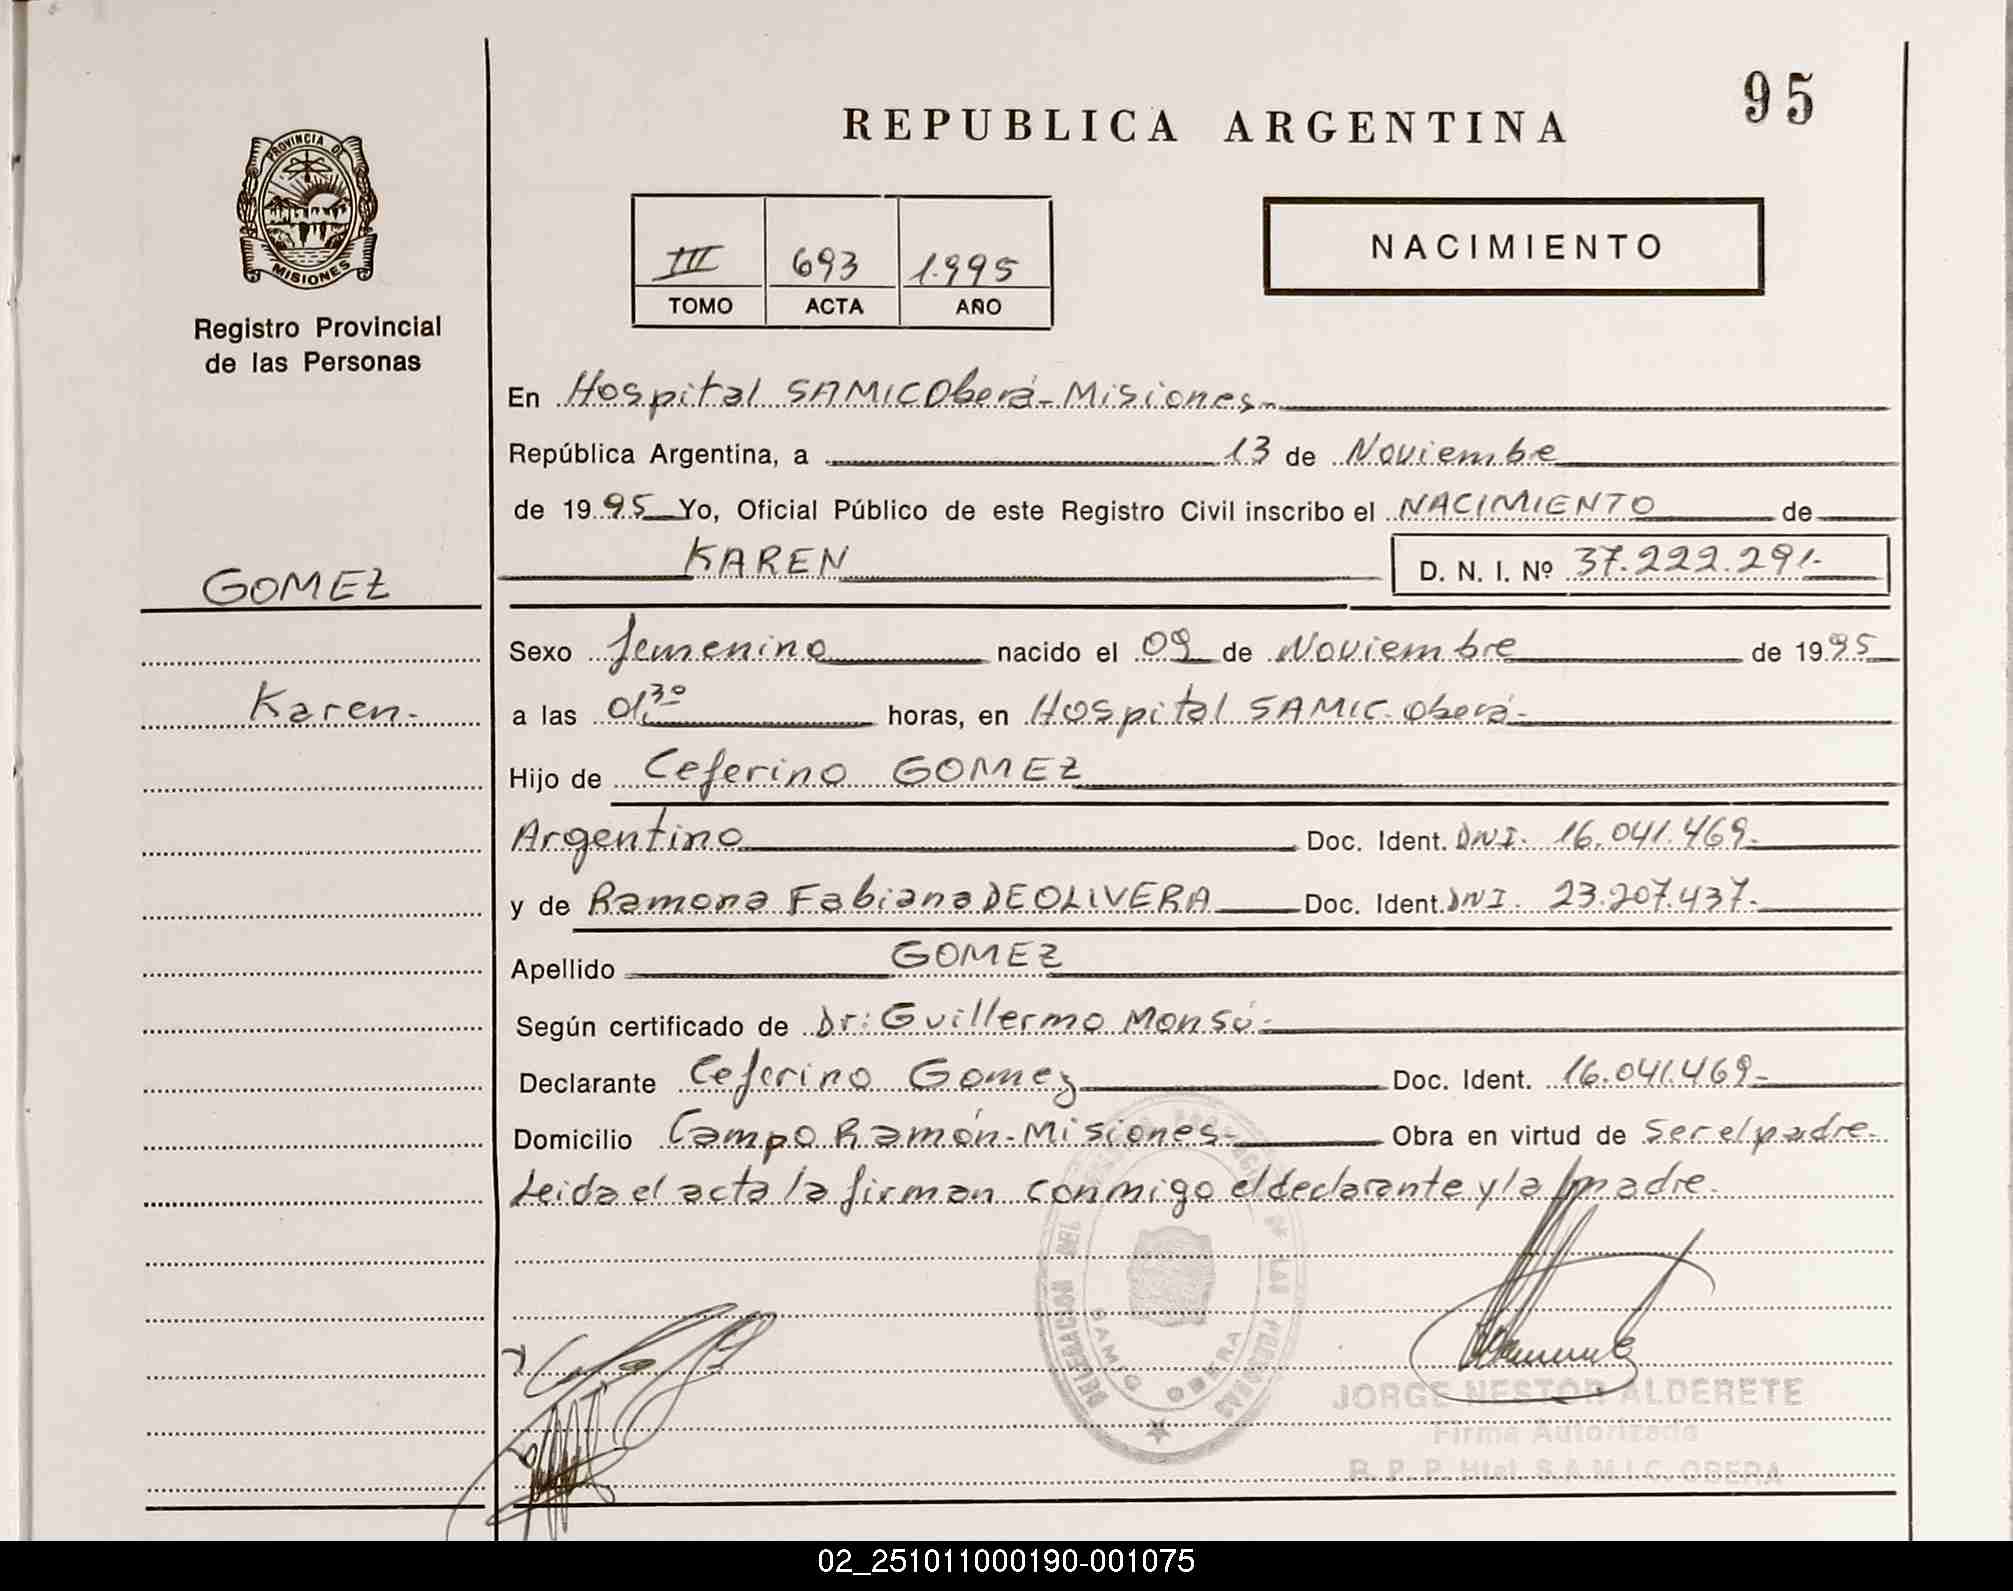 95
REPUBLICA ARGENTINA
PROVINCIA DE
MISIONES
III 693 1.995
TOMO ACTA AÑO
NACIMIENTO
Registro Provincial
de las Personas
En Hospital SAMIC Oberá - Misiones.-
República Argentina, a 13 de Noviembre
de 1995 Yo, Oficial Público de este Registro Civil inscribo el NACIMIENTO de
KAREN D. N. I. Nº 37.222.291.-
GOMEZ
Sexo femenino nacido el 09 de Noviembre de 1995
Karen.- a las 01,30 horas, en Hospital SAMIC. Oberá-
Hijo de Ceferino GOMEZ
Argentino Doc. Ident. DNI. 16.041.469.-
y de Ramona Fabiana DE OLIVERA Doc. Ident. DNI. 23.207.437.-
Apellido GOMEZ
Según certificado de Dr: Guillermo Monsó.-
Declarante Ceferino Gomez Doc. Ident. 16.041.469.-
Domicilio Campo Ramón - Misiones.- Obra en virtud de ser el padre.-
Leida el acta la firman conmigo el declarante y la madre.
DELEGACION DEL REGISTRO PROVINCIAL DE LAS PERSONAS
SAMIC OBERA
JORGE NESTOR ALDERETE
Firma Autorizada
R. P. P. Htal. S.A.M.I.C. OBERA
02_251011000190-001075